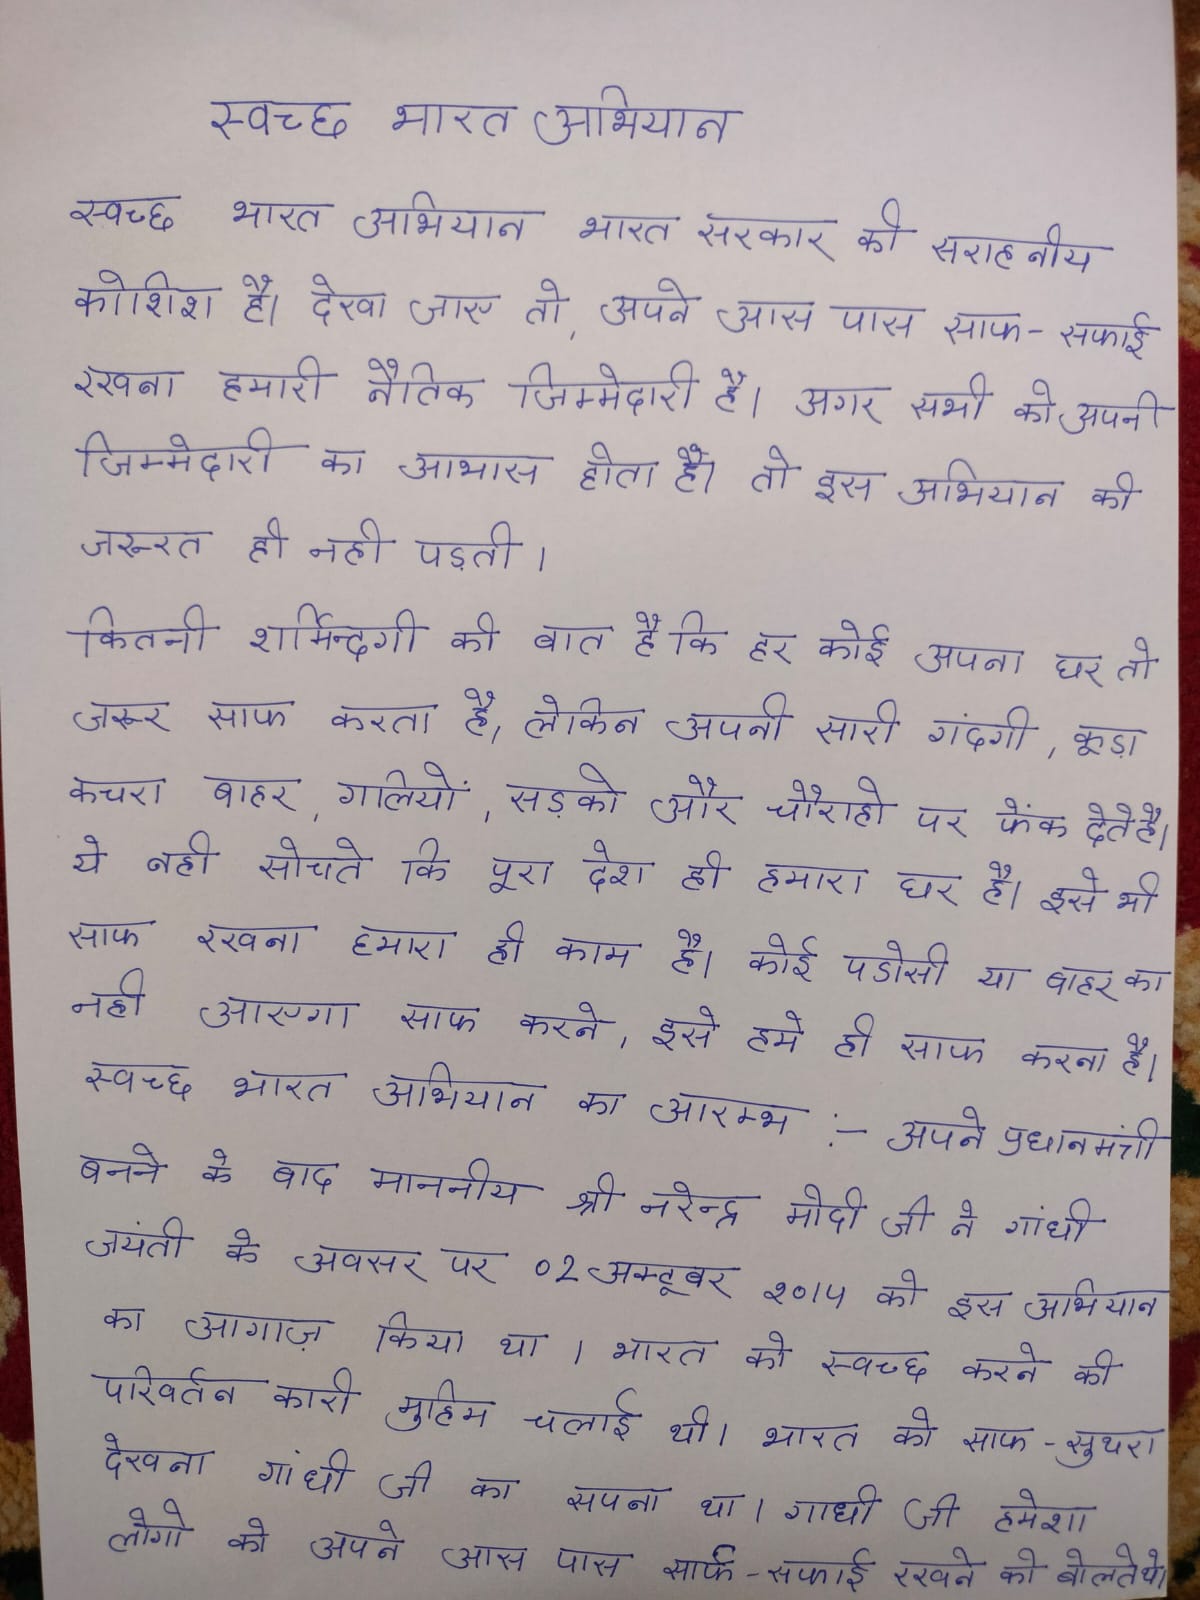 स्वच्छ भारत अभियान
स्वच्छ भारत अभियान भारत सरकार की सराहनीय
कोशिश है। देखा जाए तो, अपने आस पास साफ-सफाई
रखना हमारी नैतिक जिम्मेदारी है। अगर सभी को अपनी
जिम्मेदारी का आभास होता है। तो इस अभियान की
जरूरत ही नही पड़ती।
कितनी शर्मिन्दगी की बात है कि हर कोई अपना घर तो
जरूर साफ करता है, लेकिन अपनी सारी गंदगी, कूड़ा
कचरा बाहर, गलियों, सड़को और चौराहो पर फेंक देते है।
ये नही सोचते कि पूरा देश ही हमारा घर है। इसे भी
साफ रखना हमारा ही काम है। कोई पडोसी या बाहर का
नही आएगा साफ करने, इसे हमे ही साफ करना है।
स्वच्छ भारत अभियान का आरम्भ :- अपने प्रधानमंत्री
बनने के बाद माननीय श्री नरेन्द्र मोदी जी ने गांधी
जयंती के अवसर पर 02 अक्टूबर २०१५ को इस अभियान
का आगाज़ किया था। भारत को स्वच्छ करने की
परिवर्तन कारी मुहिम चलाई थी। भारत को साफ-सुथरा
देखना गांधी जी का सपना था। गाधी जी हमेशा
लोगो को अपने आस पास साफ-सफाई रखने को बोलते थे।